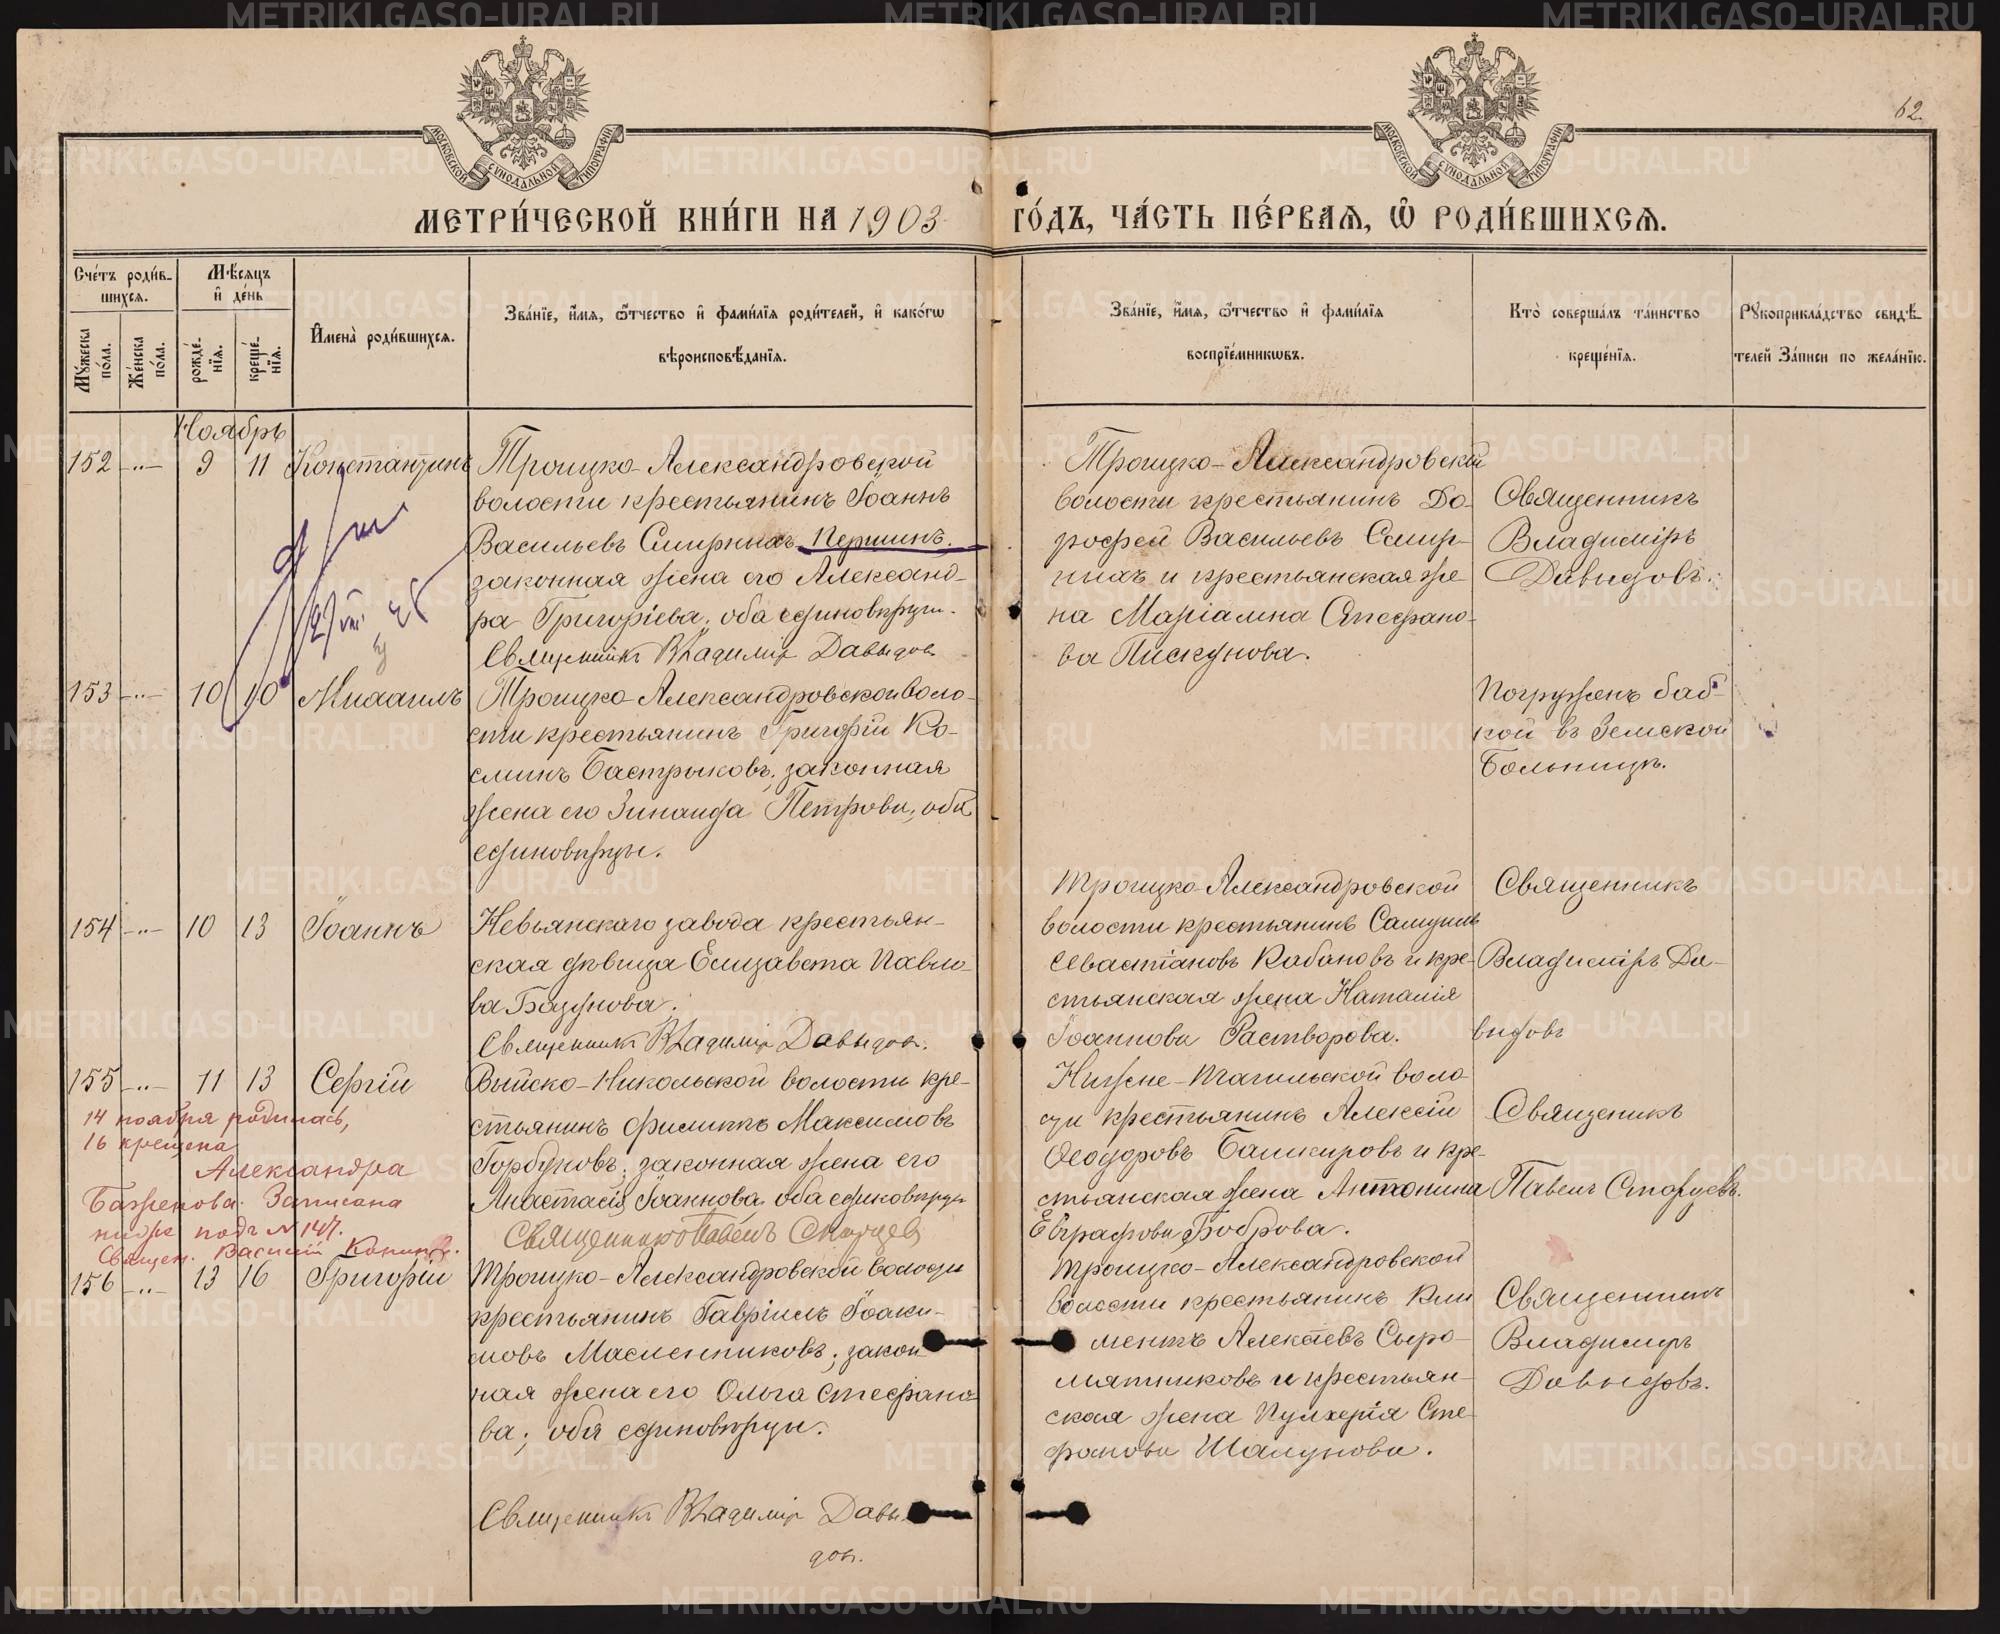 МОСКОВСКОЙ СУНОДАЛЬНОЙ ТИПОГРАФІИ
МОСКОВСКОЙ СУНОДАЛЬНОЙ ТИПОГРАФІИ
62.
МЕТРИ́ЧЕСКОЙ КНИ́ГИ НА 1903
ГО́ДЪ, ЧА́СТЬ ПЕ́РВАѦ, Ѡ҆ РОДИ́ВШИХСѦ.
Сче́тъ роди́в-
шихсѧ.
Мꙋжеска по́ла.
Же́нска по́ла.
Мѣ́сѧцъ
и҆ де́нь
рожде́-нїѧ.
креще́-нїѧ.
И҆мена̀ роди́вшихсѧ.
Зва́нїе, и҆́мѧ, ѻ҆́тчество и҆ фами́лїѧ роди́телей, и҆ како́гѡ
вѣроисповѣ́данїѧ.
Зва́нїе, и҆́мѧ, ѻ҆́тчество и҆ фами́лїѧ
воспрїе́мникѡвъ.
Кто̀ соверша́лъ та́инство
креще́нїѧ.
Рꙋкоприкла́дство свидѣ́-
телей за́писи по жела́нїю.
Ноябрь
152 -"- 9 11 Константинъ
Троицко-Александровской
волости крестьянинъ Іоаннъ
Васильевъ Смирныхъ Першинъ.
законная жена его Александ-
ра Григоріева, оба единовѣрцы.
Священникъ Владимір Давыдов
Троицко-Александровской
волости крестьянинъ До-
рофей Васильевъ Смир-
ныхъ и крестьянская же
на Маріамна Стефано-
ва Пискунова.
Священникъ
Владиміръ
Давидовъ.
153 -"- 10 10 Михаилъ
Троицко-Александровской воло-
сти крестьянинъ Григорій Ко-
сминъ Бастрыковъ, законная
жена его Зинаида Петрова, оба
единовѣрцы.
Погруженъ баб-
кой въ Земской
Больницѣ.
154 -"- 10 13 Іоаннъ
Невьянскаго завода крестьян-
ская дѣвица Елизавета Павло-
ва Базунова.
Священникъ Владимір Давыдов.
Троицко-Александровской
волости крестьянинъ Самуилъ
Севастіановъ Кабановъ и кре-
стьянская жена Наталія
Іоаннова Растворова.
Священникъ
Владиміръ Да-
видовъ
155 -"- 11 13 Сергій
14 ноября родилась,
16 крещена
Александра
Баженова. Записана
ниже подъ № 147.
Священ. Василій
Выйско-Никольской волости кре-
стьянинъ Филиппъ Максимовъ
Горбуновъ, законная жена его
Анастасія Іоаннова оба единовѣрцы
Священникъ Павелъ Старцев
Нижне-Тагильской воло
сти крестьянинъ Алексій
Ѳеодоровъ Башкировъ и кре-
стьянская жена Антонина
Евграфова Боброва.
Священникъ
Павелъ Старцевъ.
156 -"- 13 16 Григорій
Троицко-Александровской волости
крестьянинъ Гавріилъ Іоаки-
мовъ Масленниковъ, закон
ная жена его Ольга Стефано
ва; оба единовѣрцы.
Священникъ Владимір Давы-
дов.
Троицко-Александровской
волости крестьянинъ Кли
ментъ Алексѣевъ Сыро-
мятниковъ и крестьян-
ская жена Пулхерія Сте
фанова Шалунова.
Священникъ
Владиміръ
Давыдовъ.